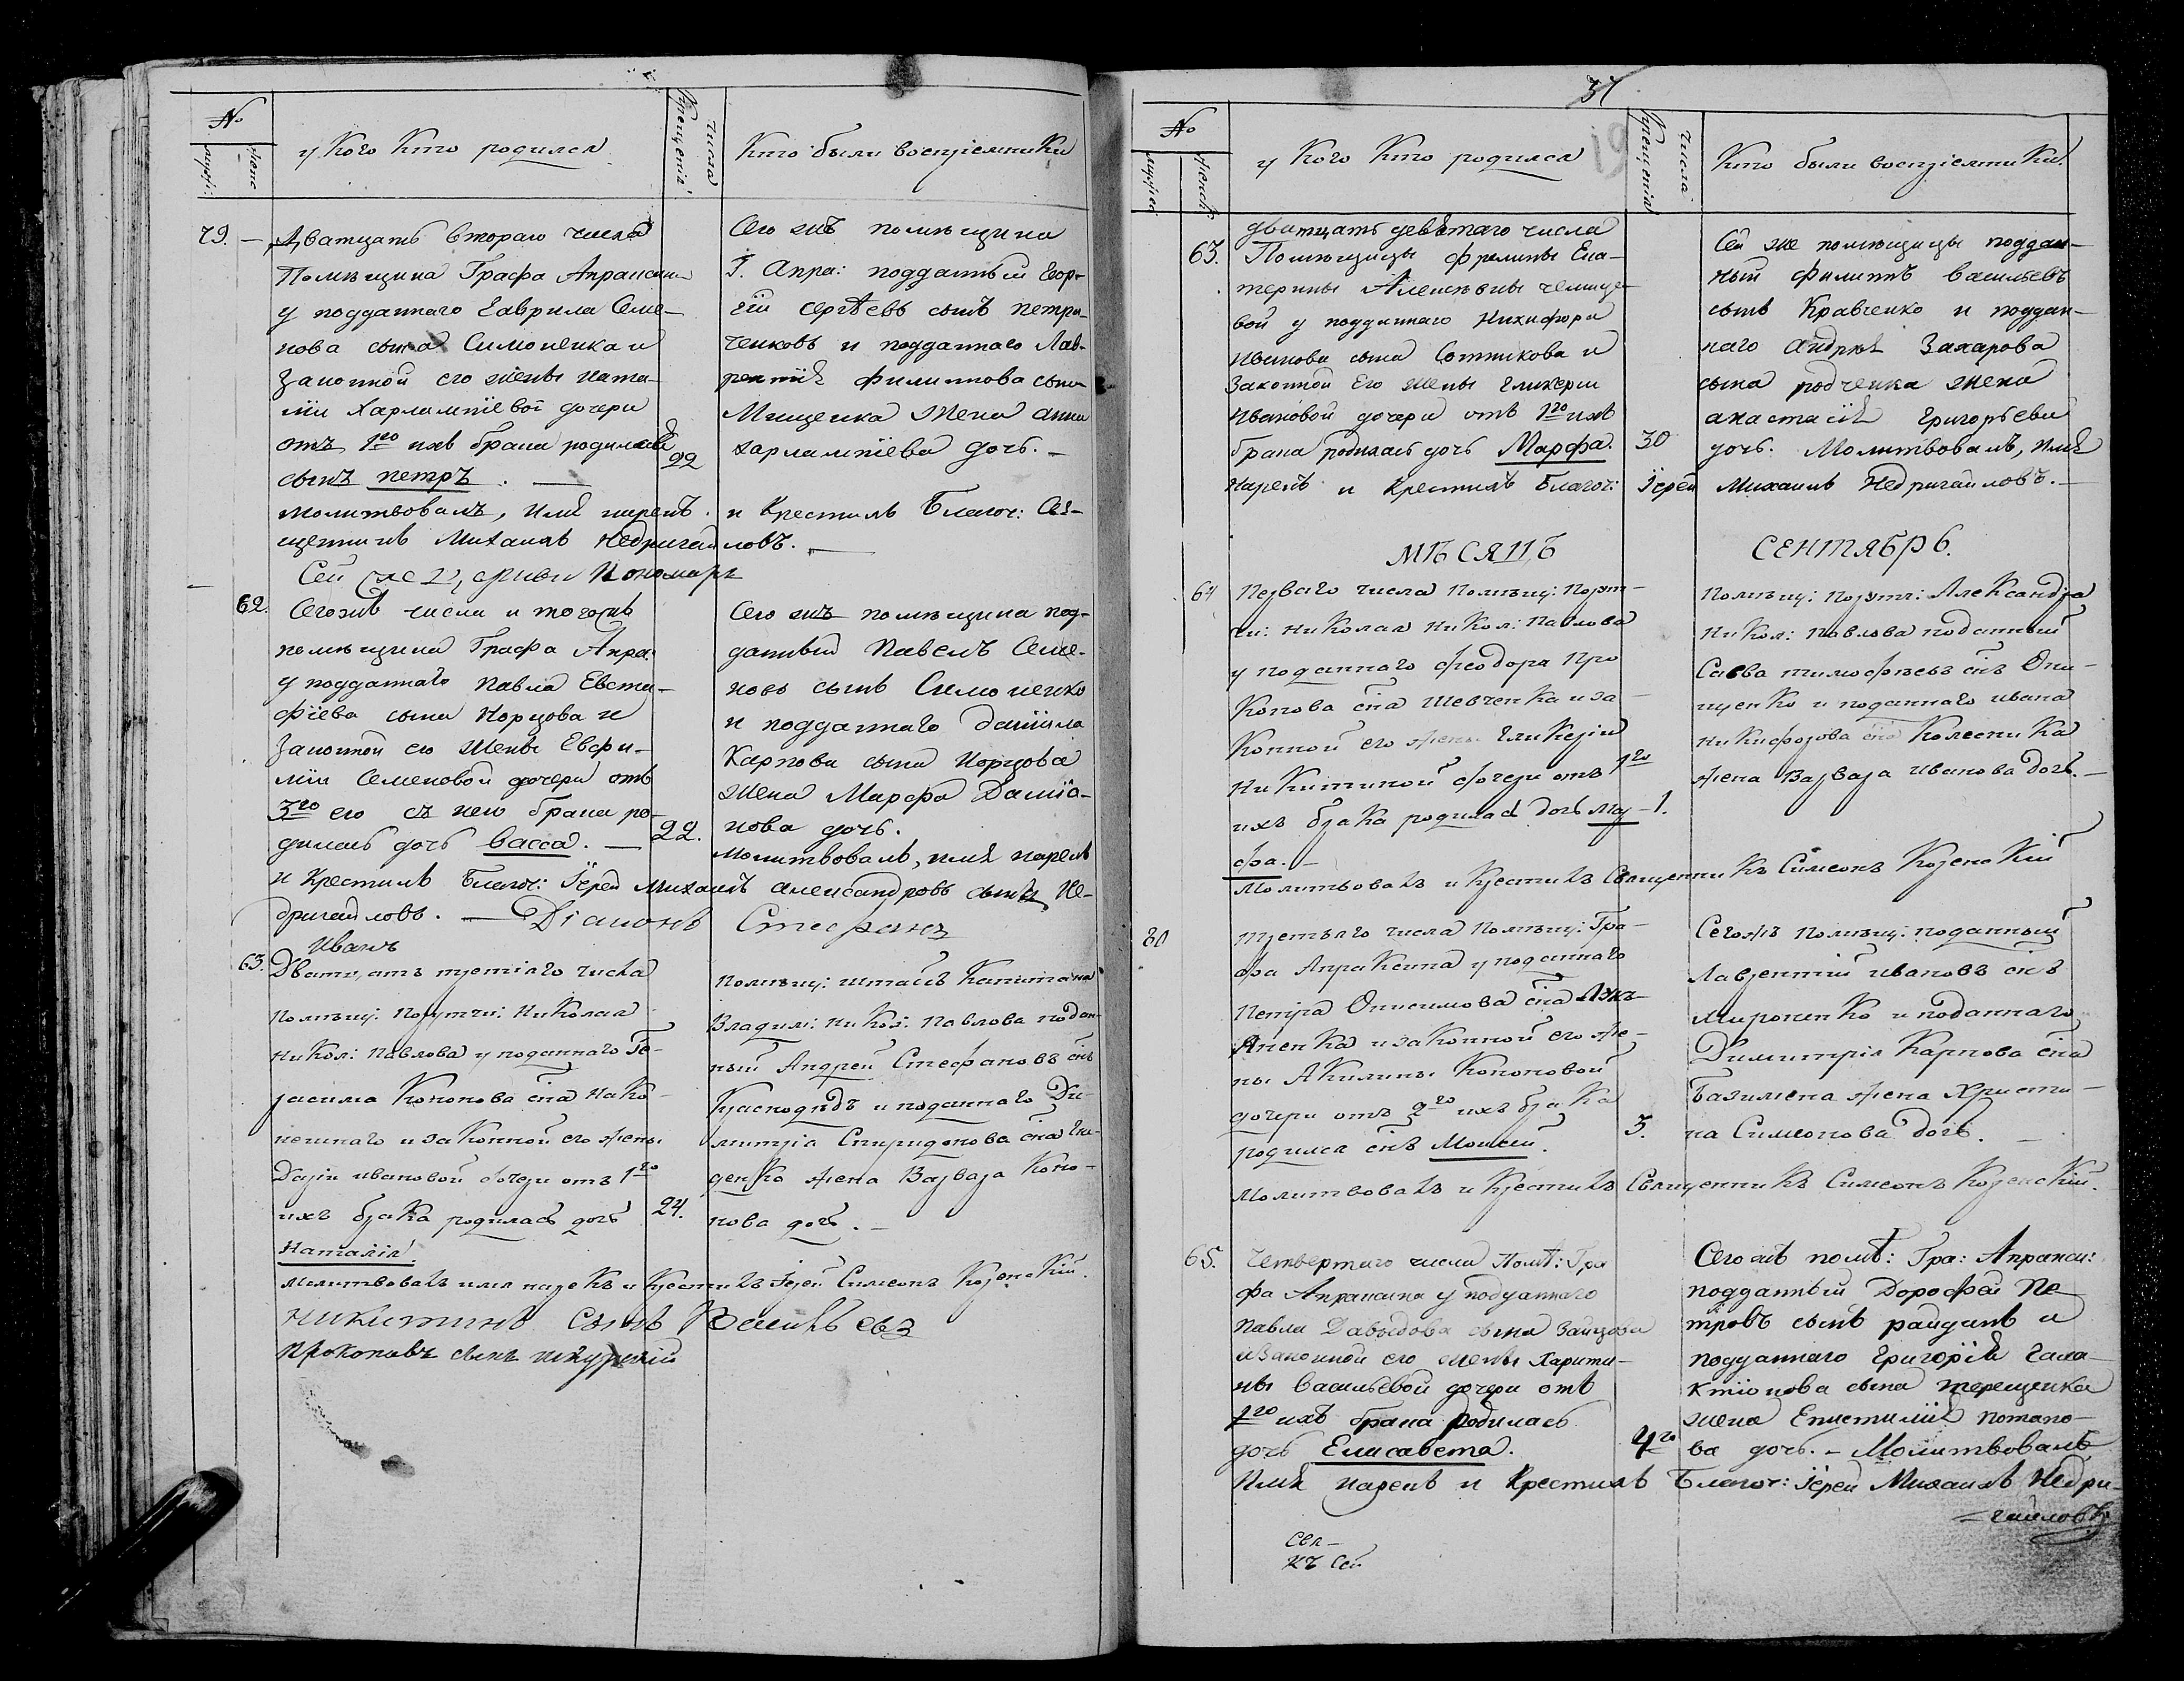 №
мужес:
женс
у кого кто родился
Числа Крещенія
Кто были воспріемники
79. —
Дватцать втораго числа
Помѣщика Графа Апраксина
у подданнаго Гаврила Семе-
нова сына Симоненка и
Законной его жены Ната-
ліи Харлампіевой дочери
отъ 1го ихъ брака родился
сынъ петръ. —
22
Сего жъ помѣщика
Г. Апра: подданный Геор-
гій Сергѣевъ сынъ петри-
ченковъ и подданнаго Лав-
рентія филиппова сына
Мищенка жена анна
харлампіева дочь. —
молитвовалъ, имя нарекъ и Крестилъ Благоч: Свя-
щенникъ Михаилъ Недригайловъ. —
Сей же Церкви Пономарь
62.
Сегожъ числа и тогожъ
помѣщика Графа Апра:
у подданнаго Павла Евста-
фіева сына Норцова и
Законной его жены Евфи-
міи Семеновой дочери отъ
3го его съ нею брака ро-
дилась дочь васса. —
22.
Сего жъ помѣщика под-
данный Павелъ Семе-
новъ сынъ Симоненко
и подданнаго даніила
Карпова сына Норцова
жена Марфа Даміа-
нова дочь.
молитвовалъ, имя нарекъ
и Крестилъ Благоч: Іерей Михаилъ александровъ сынъ Не-
дригайловъ. — Діаконъ Стефанъ
Иванъ
63.
Дватцать третіаго числа
помѣщ: Порутчи: Николая
Никол: Павлова у поданнаго Ге-
расима Кононова сна Нако-
нешнаго и законной его жены
Даріи ивановой дочери отъ 1го
ихъ брака родилась дочь
Наталія.
24.
помѣщ: штабсъ Капитана
Владим: Никол: Павлова подан-
ный Андрей Стефановъ снъ
Красподѣдъ и поданнаго Ди-
митрія Спиридонова сна Гни-
денка жена Варвара Коно-
нова дочь. —
молитвовалъ имя нарекъ и Крестилъ Іерей Симеонъ Козенскій.
никитинъ Сынъ Васильевъ
прокопивъ сынъ шкурскій
31
19
№
мужес
женск:
у кого кто родился
Числа Крещенія
Кто были воспріемники.
63.
Дватцать девятаго числа
Помѣщицы фрелины Ека-
терины Алексѣевны челище-
вой у подданнаго Никифора
Иванова сына Сотникова и
Законной Его жены гликеріи
Ивановой дочери отъ 1го ихъ
брака родилась дочь Марфа.
30
Сей же помѣщицы поддан-
ный филиппъ васильевъ
сынъ Кравченко и поддан-
наго Андрея Захарова
сына родченка жена
анастасія григорьева
дочь. Молитвовалъ, имя
Нарекъ и Крестилъ Благоч: Іерей Михаилъ Недригайловъ. —
МѢСЯЦЪ СЕНТЯБРЬ.
64
Перваго числа помѣщ: порут-
чи: Николая Никол: Павлова
у поданнаго феодора Про
Копова сна Шевченка и за-
Конной его жены гликеріи
никитиной дочери отъ 1го
ихъ брака родилась дочь Мар-
фа. —
1.
помѣщ: порутч: Александра
Никол: Павлова поданный
Савва тимофѣевъ снъ Они-
щенко и поданнаго ивана
никифорова сна Колесника
жена Варвара иванова дочь. —
Молитвовалъ и Крестилъ Священникъ Симеонъ Козенскій
80
третьяго числа помѣщ: Гра-
фа Апраксина у поданнаго
Петра Онисимова сна Лукь-
яненка и законной его же-
ны Акилины Кононовой
дочери отъ 2го ихъ брака
родился снъ Моисей.
3.
Сегожъ помѣщ: поданный
Лаврентій ивановъ снъ
мироненко и поданнаго
Димитрія Карпова сна
Базимена жена Христи-
на Симеонова дочь. —
Молитвовалъ и Крестилъ Священникъ Симеонъ Козенскій.
65.
Четвертаго числа Помѣ: Гра
фа Апраксина у подданнаго
павла Давыдова сына Зайцова
и Законной его жены Харити-
ны Васильевой дочери отъ
1го ихъ брака родилась
дочь Елисавета.
4го
Сего жъ помѣ: Гра: Апракси:
подданный Дорофей Пе
тровъ сынъ райданъ и
подданнаго григорія гала-
ктіонова сына терещенка
жена Епистимія потапо-
ва дочь. — Молитвовалъ
Имя нарекъ и Крестилъ Благоч: Іерей Михаилъ Недри-
— гайловъ
Свя —
къ Сей